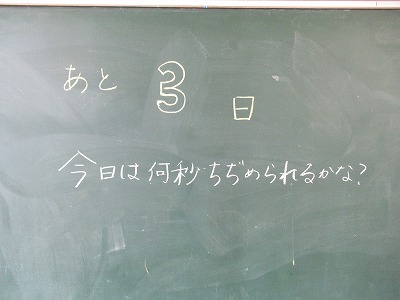 あと 3 日
今日は何秒ちぢめられるかな?